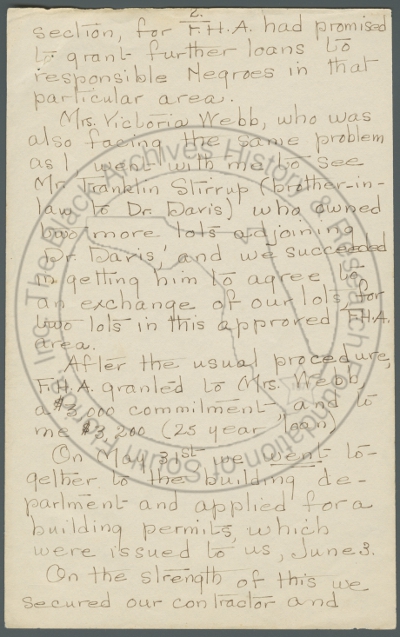 2.
section, for F.H.A. had promised
to grant further loans to
responsible Negroes in that
particular area.
Mrs. Victoria Webb, who was
also facing the same problem
as I, went with me to see
Mr. Franklin Stirrup (brother-in-
law to Dr. Davis) who owned
two more lots adjoining
Dr. Davis', and we succeeded
in getting him to agree to
an exchange of our lots for
two lots in this approved F.H.A.
area.
After the usual procedure,
F.H.A. granted to Mrs. Webb,
a $3,000 commitment, and to
me $3,200 (25 year loan)
On May 31st we went to-
gether to the building de-
partment and applied for a
building permits, which
were issued to us, June 3.
On the strength of this we
secured our contractor and
The Black Archives History & Research Foundation of South Florida, Inc.